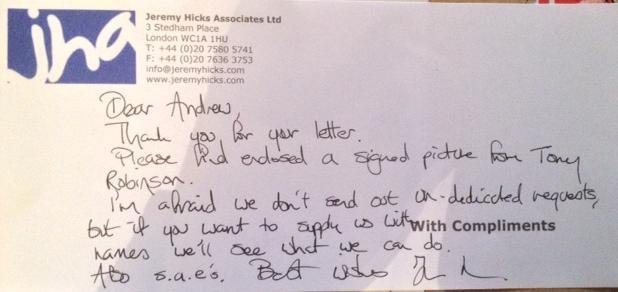 jha
Jeremy Hicks Associates Ltd
3 Stedham Place
London WC1A 1HU
T: +44 (0)20 7580 5741
F: +44 (0)20 7636 3753
info@jeremyhicks.com
www.jeremyhicks.com
Dear Andrew,
Thank you for your letter.
Please find enclosed a signed picture from Tony
Robinson.
I'm afraid we don't send out un-dedicated requests,
but if you want to supply us with
With Compliments
names we'll see what we can do.
Also s.a.e's. Best wishes